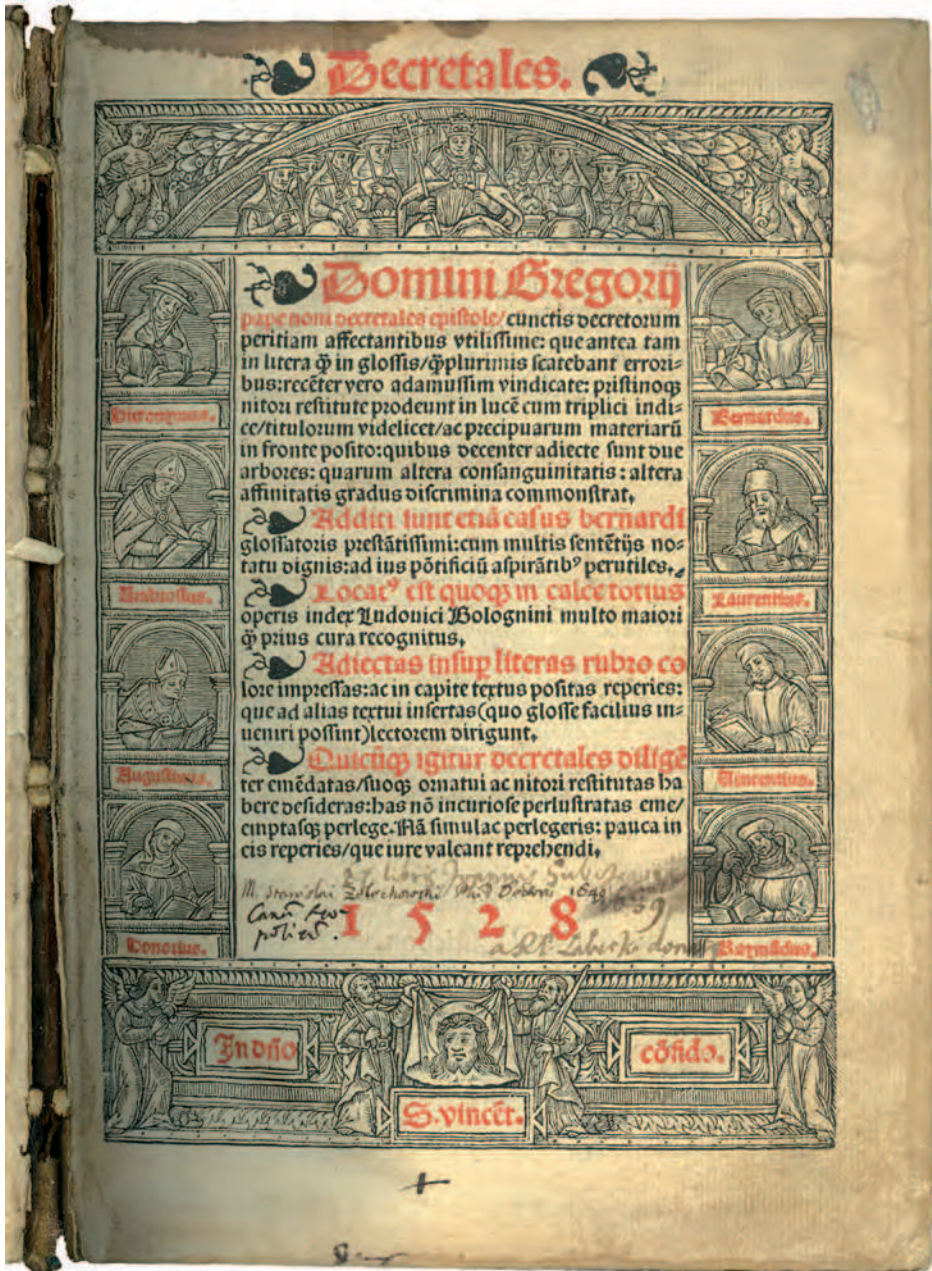 Decretales.
Domini Gregorij
pape noni decretales epistole/cunctis decretorum
peritiam affectantibus vtilissime: que antea tam
in litera ꝙ̃ in glossis/ꝙ̃plurimis scatebant errori⸗
bus:recẽter vero adamussim vindicate: pristinoqꝫ
nitori restitute prodeunt in lucẽ cum triplici indi⸗
ce/titulorum videlicet/ac precipuarum materiarũ
in fronte posito:quibus decenter adiecte sunt due
arbores: quarum altera consanguinitatis : altera
affinitatis gradus discrimina commonstrat.
Additi sunt etiã casus bernardi
glossatoris prestãtissimi:cum multis sentẽtijs no⸗
tatu dignis:ad ius põtificiũ aspirãtibꝰ perutiles.
Locatꝰ est quoqꝫ in calce totius
operis index Ludouici Bolognini multo maiori
ꝙ̃ prius cura recognitus.
Adiectas insuꝑ literas rubro co
lore impressas:ac in capite textus positas reperies:
que ad alias textui insertas(quo glosse facilius in⸗
ueniri possint)lectorem dirigunt.
Quicũqꝫ igitur decretales diligẽ
ter emẽdatas/suoqꝫ ornatui ac nitori restitutas ha
bere desideras:has nõ incuriose perlustratas eme/
emptasqꝫ perlege.Nã simulac perlegeris: pauca in
eis reperies/que iure valeant reprehendi.
Hieronymus.
Ambrosius.
Augustinus.
Honorius.
Bernardus.
Laurentius.
Vincentius.
Raymũdus.
ex libris
M. Stanislai
1528
a
In dño
cõfido.
S.vincẽt.